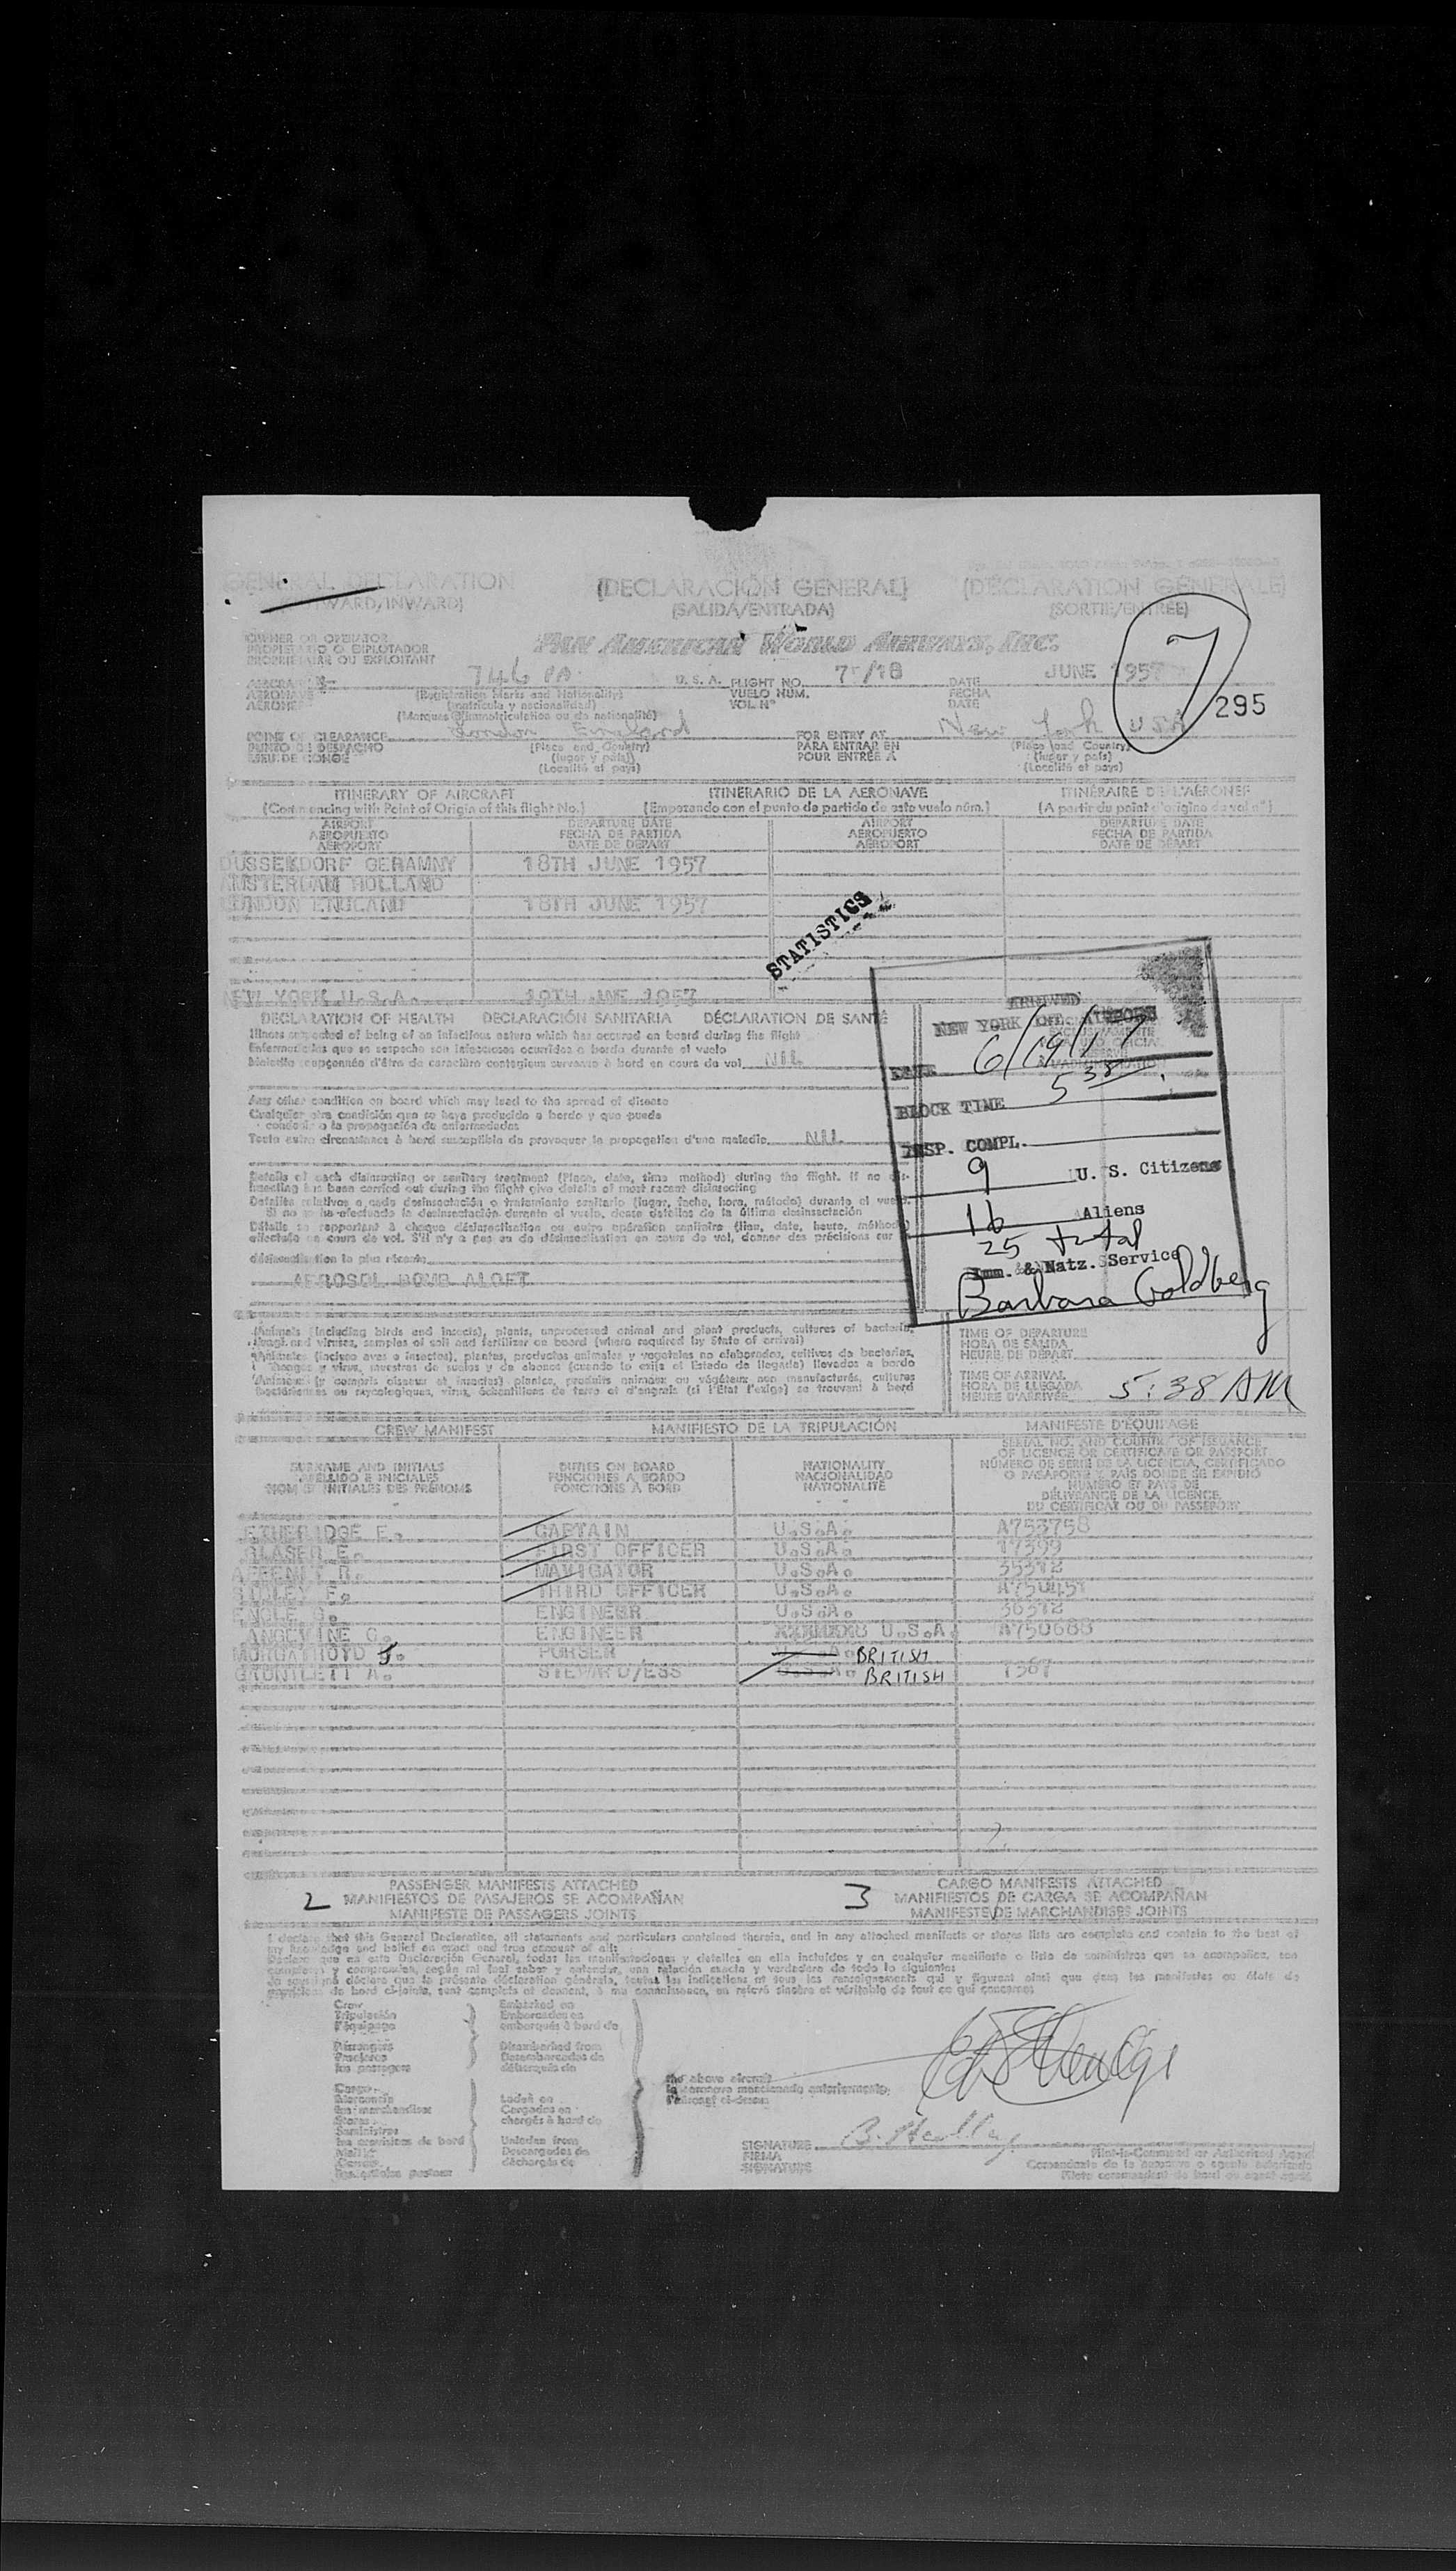 GENERAL DECLARATION (DECLARACIÓN GENERAL) (DÉCLARATION GÉNÉRALE)
(OUTWARD/INWARD) (SALIDA/ENTRADA) (SORTIE/ENTRÉE)
OWNER OR OPERATOR
PROPIETARIO O EXPLOTADOR
PROPRIÉTAIRE OU EXPLOITANT
PAN AMERICAN WORLD AIRWAYS, INC.
7
AIRCRAFT 746 PA U. S. A. FLIGHT NO. /18 DATE JUNE 1957
AERONAVE (Registration Marks and Nationality) VUELO NÚM. FECHA
AÉRONEF (matrícula y nacionalidad) VOL Nº DATE
(Marques d'immatriculation ou de nationalité)
295
POINT OF CLEARANCE London England FOR ENTRY AT New York USA
PUNTO DE DESPACHO (Place and Country) PARA ENTRAR EN (Place and Country)
LIEU DE CONGÉ (lugar y país) POUR ENTRÉE A (lugar y país)
(Localité et pays) (Localité et pays)
ITINERARY OF AIRCRAFT ITINERARIO DE LA AERONAVE ITINÉRAIRE DE L'AÉRONEF
(Commencing with Point of Origin of this flight No.) (Empezando con el punto de partida de este vuelo núm.) (A partir du point d'origine du vol nº)
AIRPORT DEPARTURE DATE AIRPORT DEPARTURE DATE
AEROPUERTO FECHA DE PARTIDA AEROPUERTO FECHA DE PARTIDA
AÉROPORT DATE DE DÉPART AÉROPORT DATE DE DÉPART
DUSSELDORF GERAMNY 18TH JUNE 1957
AMSTERDAM HOLLAND
LONDON ENGLAND 18TH JUNE 1957
STATISTICS
NEW YORK U.S.A. 19TH JNE 1957
DECLARATION OF HEALTH DECLARACIÓN SANITARIA DÉCLARATION DE SANTÉ
Illness suspected of being of an infectious nature which has occurred on board during the flight
Enfermedades que se sospeche son infecciosas ocurridas a bordo durante el vuelo
Maladie soupçonnée d'être de caractère contagieux survenue à bord en cours de vol NIL
Any other condition on board which may lead to the spread of disease
Cualquier otra condición que se haya producido a bordo y que pueda
conducir a la propagación de enfermedades
Toute autre circonstance à bord susceptible de provoquer la propagation d'une maladie NIL
Details of each disinsecting or sanitary treatment (Place, date, time method) during the flight. If no dis-
insecting has been carried out during the flight give details of most recent disinsecting
Detalles relativos a cada desinsectación o tratamiento sanitario (lugar, fecha, hora, método) durante el vuelo.
Si no se ha efectuado la desinsectación durante el vuelo, dense detalles de la última desinsectación
Détails se rapportant à chaque désinsectisation ou autre opération sanitaire (lieu, date, heure, méthode)
effectuée en cours de vol. S'il n'y a pas eu de désinsectisation en cours de vol, donner des précisions sur la
désinsectisation la plus récente
AEROSOL BOMB ALOFT
ARRIVED
NEW YORK INT. AIRPORT
DATE 6/19/
BLOCK TIME 5 38
INSP. COMPL.
9 U. S. Citizens
16 Aliens
25 total
Imm. & Natz. Service
Barbara Goldberg
Animals (including birds and insects), plants, unprocessed animal and plant products, cultures of bacteria,
fungi and viruses, samples of soil and fertilizer on board (where required by State of arrival)
Animales (incluso aves e insectos), plantas, productos animales y vegetales no elaborados, cultivos de bacterias,
hongos y virus, muestras de suelos y de abonos (cuando lo exija el Estado de llegada) llevados a bordo
Animaux (y compris oiseaux et insectes) plantes, produits animaux ou végétaux non manufacturés, cultures
bactériennes ou mycologiques, virus, échantillons de terre et d'engrais (si l'État l'exige) se trouvant à bord
TIME OF DEPARTURE
HORA DE SALIDA
HEURE DE DÉPART
TIME OF ARRIVAL
HORA DE LLEGADA
HEURE D'ARRIVÉE 5:38 AM
CREW MANIFEST MANIFIESTO DE LA TRIPULACIÓN MANIFESTE D'ÉQUIPAGE
SURNAME AND INITIALS DUTIES ON BOARD NATIONALITY SERIAL NO. AND COUNTRY OF ISSUANCE
APELLIDO E INICIALES FUNCIONES A BORDO NACIONALIDAD OF LICENCE OR CERTIFICATE OR PASSPORT
NOM ET INITIALES DES PRÉNOMS FONCTIONS A BORD NATIONALITÉ NÚMERO DE SERIE DE LA LICENCIA, CERTIFICADO
O PASAPORTE Y PAÍS DONDE SE EXPIDIÓ
NUMÉRO ET PAYS DE
DÉLIVRANCE DE LA LICENCE,
DU CERTIFICAT OU DU PASSEPORT
ETHERIDGE E. CAPTAIN U.S.A. A753758
GLASER E. FIRST OFFICER U.S.A. 17399
R. NAVIGATOR U.S.A. 35312
F. THIRD OFFICER U.S.A. A750451
ENGLE G. ENGINEER U.S.A. 36312
ANGEVINE G. ENGINEER U.S.A. A750688
MURGATROYD J. PURSER BRITISH
GAUNTLETT A. STEWARD/ESS U.S.A. BRITISH 1367
PASSENGER MANIFESTS ATTACHED CARGO MANIFESTS ATTACHED
2 MANIFIESTOS DE PASAJEROS SE ACOMPAÑAN 3 MANIFIESTOS DE CARGA SE ACOMPAÑAN
MANIFESTE DE PASSAGERS JOINTS MANIFESTE DE MARCHANDISES JOINTS
I declare that this General Declaration, all statements and particulars contained therein, and in any attached manifests or stores lists are complete and contain to the best of
my knowledge and belief an exact and true account of all:
Declaro que en esta Declaración General, todas las manifestaciones y detalles en ella incluidos y en cualquier manifiesto o lista de suministros que se acompañen, son
completos y comprenden, según mi leal saber y entender, una relación exacta y verdadera de todo lo siguiente:
Crew Embarked on
Tripulación Embarcados en
l'équipage embarqués à bord de
Passengers Disembarked from
Pasajeros Desembarcados de
les passagers débarqués de
Cargo Laden on
Mercancía Cargados en
les marchandises chargés à bord de
Stores
Suministros
les provisions de bord Unloaded from
Descargados de
déchargés de
the above aircraft
la aeronave mencionada anteriormente
SIGNATURE
FIRMA
SIGNATURE
Pilot-in-Command or Authorized Agent
Comandante de la aeronave o agente autorizado